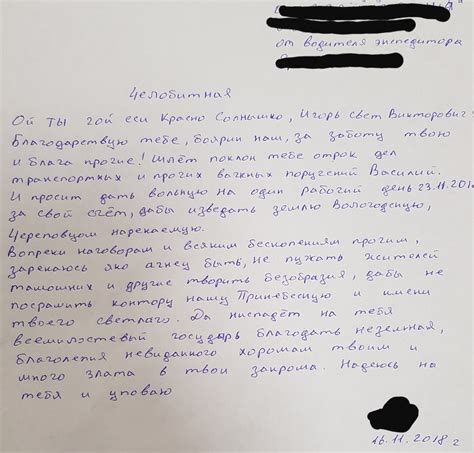 от водителя экспедитора
Челобитная
Ой ты гой еси Красно Солнышко, Игорь свет Викторович!
Благодарствую тебе, боярин наш, за заботу твою
и блага прочие! Шлёт поклон тебе отрок дел
транспортных и прочих важных поручений Василий.
И просит дать вольную на один рабочий день 23.11.201
за свой счёт, дабы изведать землю Вологодскую,
Череповцом нарекаемую.
Вопреки наговорам и всяким бесколениям прочим,
зарекаюсь яко агнец быть, не пужать жителей
тамошних и другие творить безобразия, дабы не
посрамить контору нашу Принебесную и имени
твоего светлаго. Да нисладёт на тебя
всемилостевый государь благодать неземная,
благолепия невиданного хоромам твоим и
много злата в твои закрома. Надеюсь на
тебя и уповаю
16.11.2018 г